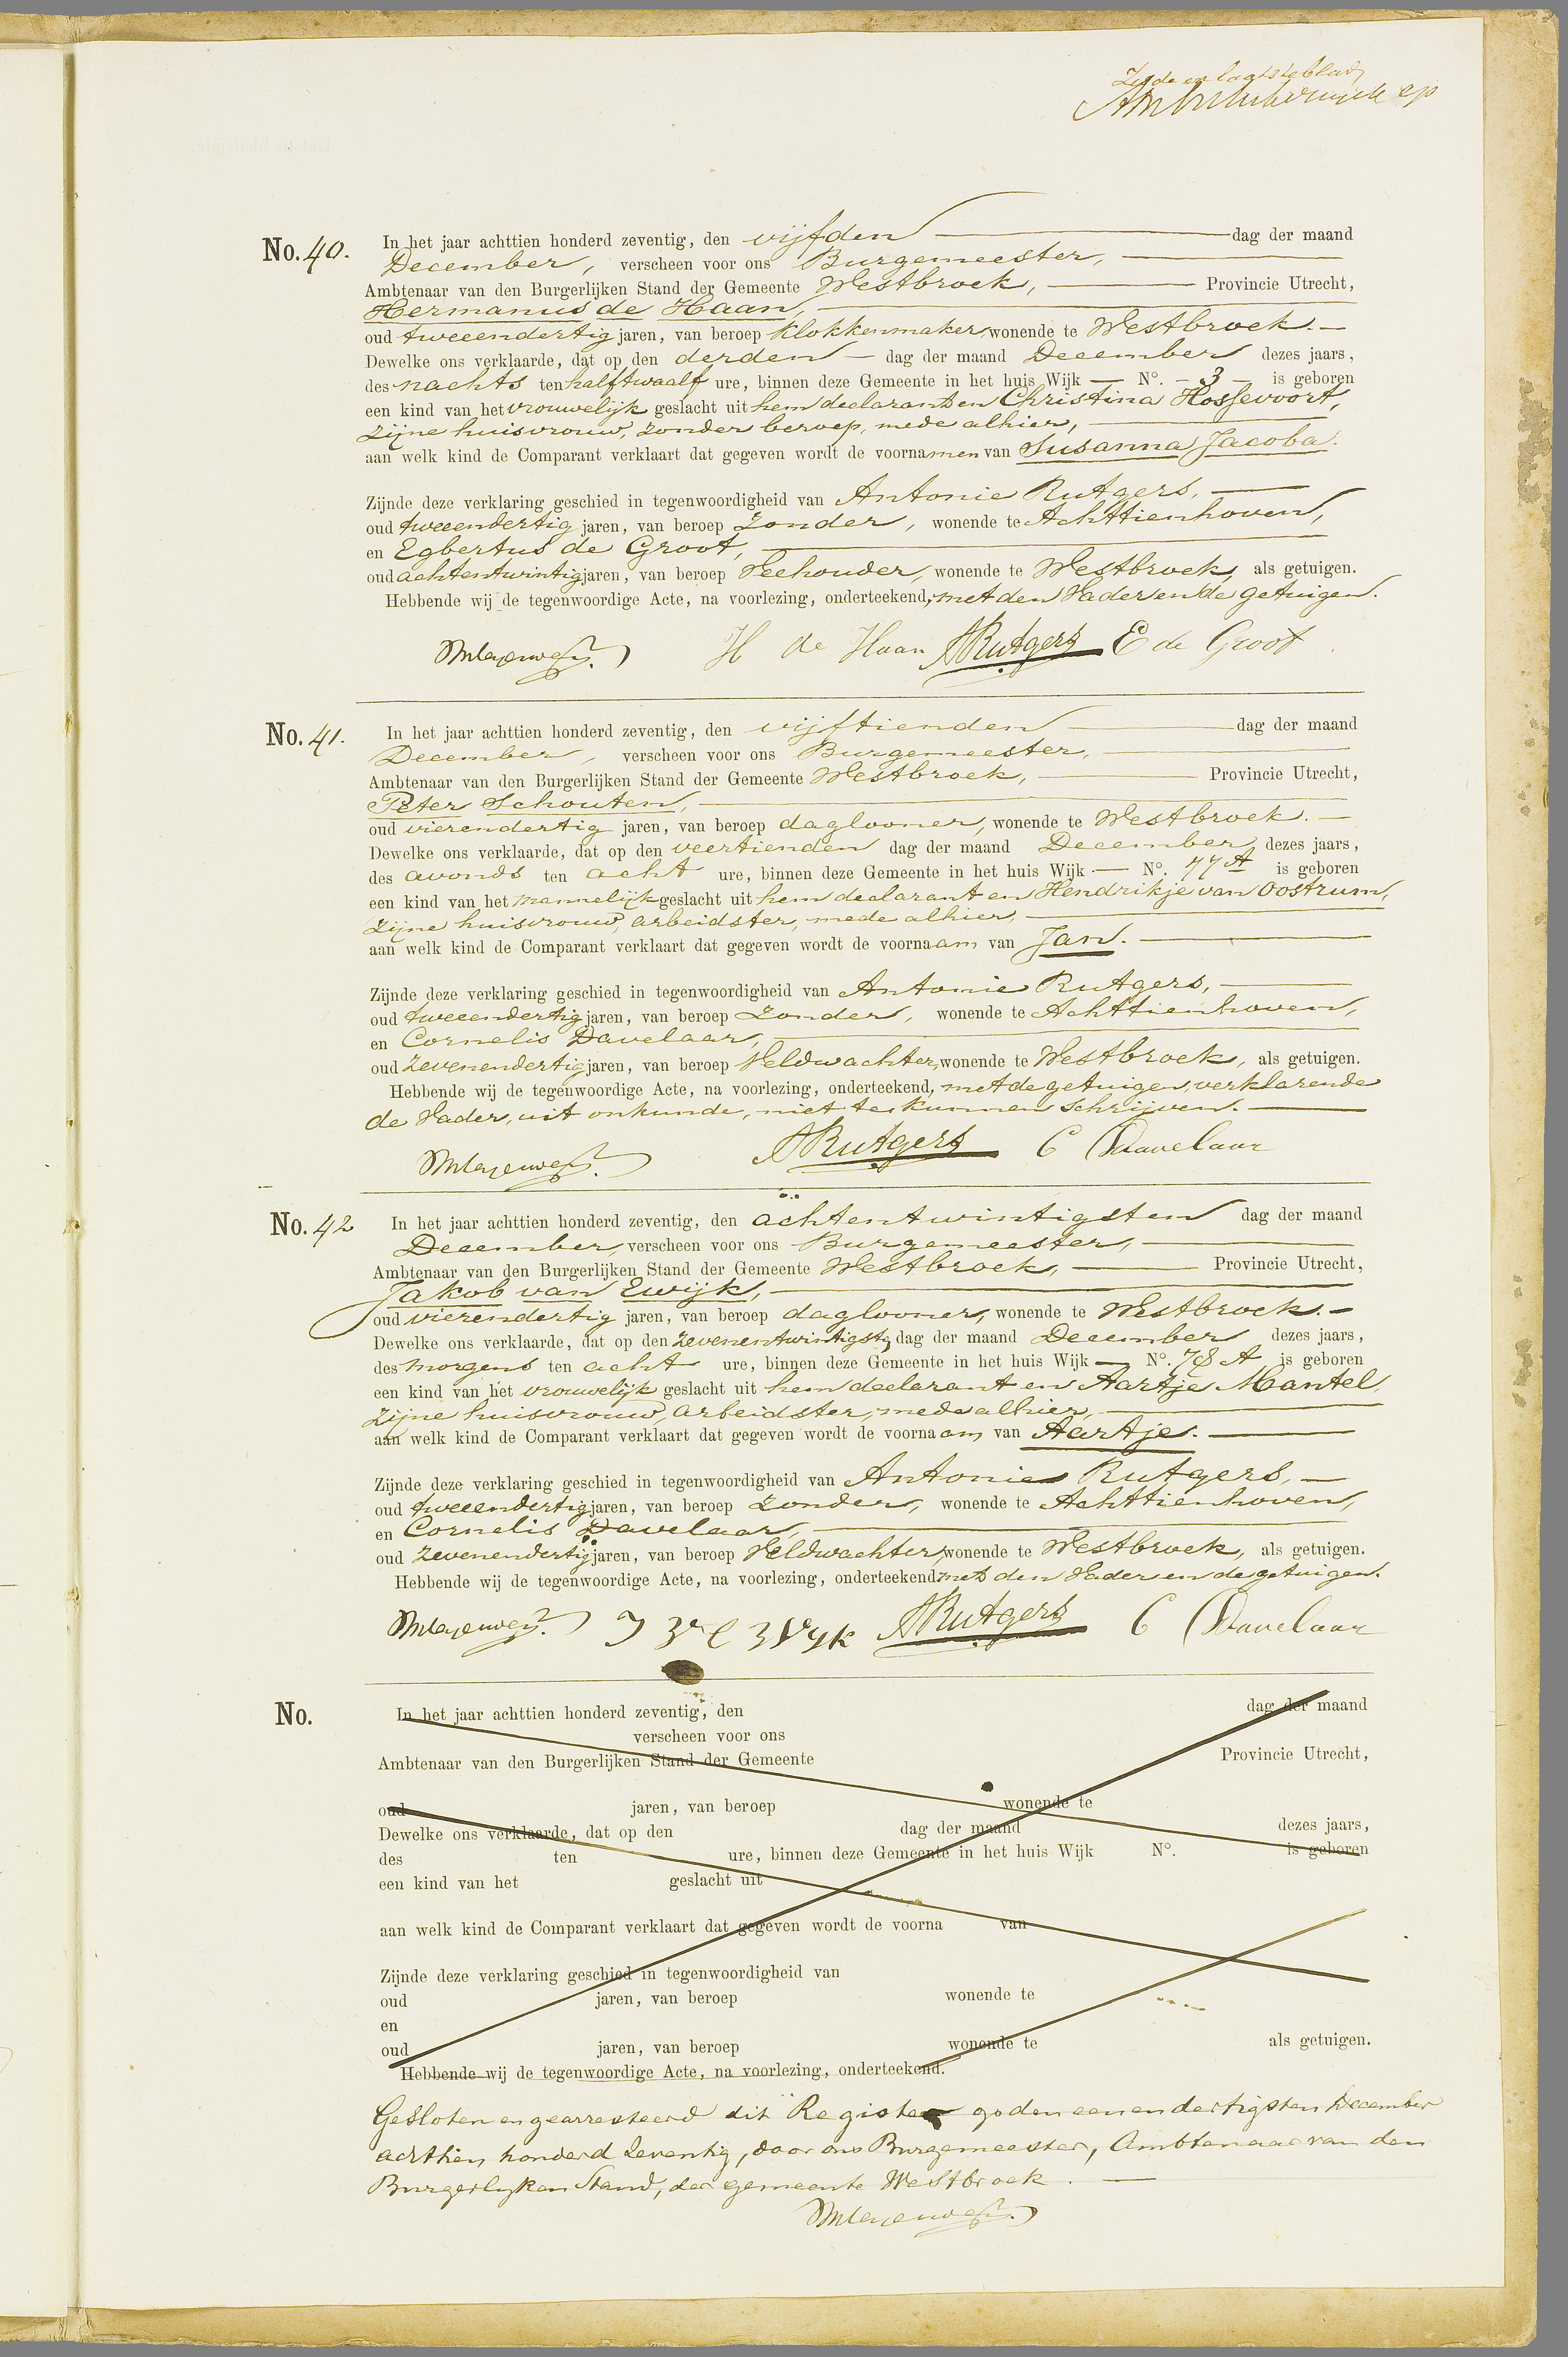 Zesde en laatste blad
No. 40. In het jaar achttien honderd zeventig, den vijfden dag der maand
December, verscheen voor ons Burgemeester,
Ambtenaar van den Burgerlijken Stand der Gemeente Westbroek, Provincie Utrecht,
Hermanus de Haan,
oud tweeendertig jaren, van beroep klokkenmaker, wonende te Westbroek.
Dewelke ons verklaarde, dat op den derden dag der maand December dezes jaars,
des nachts ten half twaalf ure, binnen deze Gemeente in het huis Wijk — No. - 3 - is geboren
een kind van het vrouwelijk geslacht uit hem declarant en Christina Hossevoort,
zijne huisvrouw, zonder beroep, mede alhier,
aan welk kind de Comparant verklaart dat gegeven wordt de voornamen van Susanna Jacoba.
Zijnde deze verklaring geschied in tegenwoordigheid van Antonie Rutgers,
oud tweeendertig jaren, van beroep zonder, wonende te Achttienhoven,
en Egbertus de Groot,
oud achtentwintig jaren, van beroep Veehouder, wonende te Westbroek, als getuigen.
Hebbende wij de tegenwoordige Acte, na voorlezing, onderteekend, met den Vader en de getuigen.
H de Haan ARutgers E de Groot
No. 41. In het jaar achttien honderd zeventig, den vijftienden dag der maand
December, verscheen voor ons Burgemeester,
Ambtenaar van den Burgerlijken Stand der Gemeente Westbroek, Provincie Utrecht,
Peter Schouten,
oud vierendertig jaren, van beroep daglooner, wonende te Westbroek.
Dewelke ons verklaarde, dat op den veertienden dag der maand December dezes jaars,
des avonds ten acht ure, binnen deze Gemeente in het huis Wijk — No. 77 A is geboren
een kind van het mannelijk geslacht uit hem declarant en Hendrikje van Oostrum,
zijne huisvrouw, arbeidster, mede alhier,
aan welk kind de Comparant verklaart dat gegeven wordt de voornaam van Jan.
Zijnde deze verklaring geschied in tegenwoordigheid van Antonie Rutgers,
oud tweeendertig jaren, van beroep zonder, wonende te Achttienhoven,
en Cornelis Davelaar,
oud zevenendertig jaren, van beroep Veldwachter, wonende te Westbroek, als getuigen.
Hebbende wij de tegenwoordige Acte, na voorlezing, onderteekend, met de getuigen, verklarende
de Vader, uit onkunde, niet te kunnen schrijven.
ARutgers C Davelaar
No. 42 In het jaar achttien honderd zeventig, den achtentwintigsten dag der maand
December, verscheen voor ons Burgemeester,
Ambtenaar van den Burgerlijken Stand der Gemeente Westbroek, Provincie Utrecht,
Jakob van Ewijk,
oud vierendertig jaren, van beroep daglooner, wonende te Westbroek.
Dewelke ons verklaarde, dat op den zevenentwintigsten dag der maand December dezes jaars,
des morgens ten acht ure, binnen deze Gemeente in het huis Wijk — No. 78 A is geboren
een kind van het vrouwelijk geslacht uit hem declarant en Aartje Mantel,
zijne huisvrouw, arbeidster, mede alhier,
aan welk kind de Comparant verklaart dat gegeven wordt de voornaam van Aartje.
Zijnde deze verklaring geschied in tegenwoordigheid van Antonie Rutgers,
oud tweeendertig jaren, van beroep zonder, wonende te Achttienhoven,
en Cornelis Davelaar,
oud zevenendertig jaren, van beroep Veldwachter, wonende te Westbroek, als getuigen.
Hebbende wij de tegenwoordige Acte, na voorlezing, onderteekend, met den Vader en de getuigen.
ARutgers C Davelaar
No. In het jaar achttien honderd zeventig, den dag der maand
verscheen voor ons
Ambtenaar van den Burgerlijken Stand der Gemeente Provincie Utrecht,
oud jaren, van beroep wonende te
Dewelke ons verklaarde, dat op den dag der maand dezes jaars,
des ten ure, binnen deze Gemeente in het huis Wijk No. is geboren
een kind van het geslacht uit
aan welk kind de Comparant verklaart dat gegeven wordt de voorna van
Zijnde deze verklaring geschied in tegenwoordigheid van
oud jaren, van beroep wonende te
en
oud jaren, van beroep wonende te als getuigen.
Hebbende wij de tegenwoordige Acte, na voorlezing, onderteekend.
Gesloten en gearresteerd dit Register op den eenendertigsten December
achttien honderd zeventig, door ons Burgemeester, Ambtenaar van den
Burgerlyken Stand, der gemeente Westbroek.